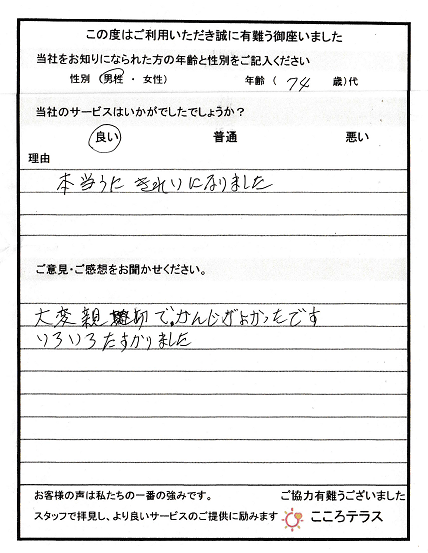 この度はご利用いただき誠に有難う御座いました
当社をお知りになられた方の年齢と性別をご記入ください
性別 (男性 ・ 女性) 年齢 ( 74 歳)代
当社のサービスはいかがでしたでしょうか?
良い 普通 悪い
理由
本当うに きれいになりました
ご意見・ご感想をお聞かせください。
大変親切で、かんじがよかったです
いろいろたすかりました
お客様の声は私たちの一番の強みです。 ご協力有難うございました
スタッフで拝見し、より良いサービスのご提供に励みます こころテラス